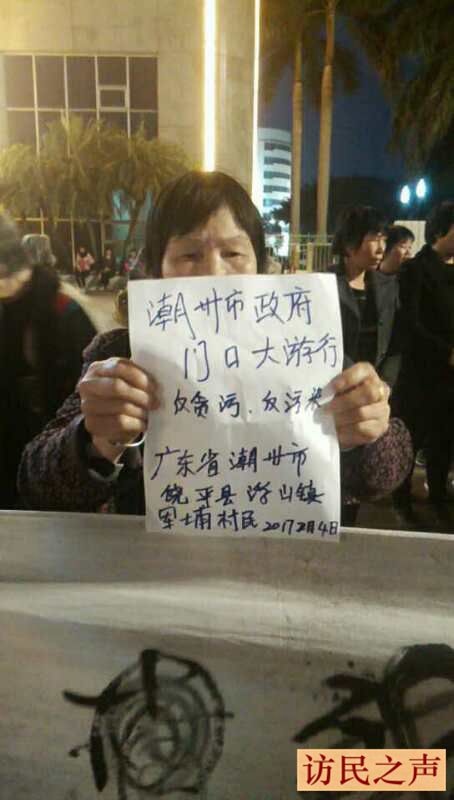 潮州市政府
门口大游行
反贪污,反污染
广东省潮州市
饶平县浮山镇
军埔村民20172月4日
访民之声